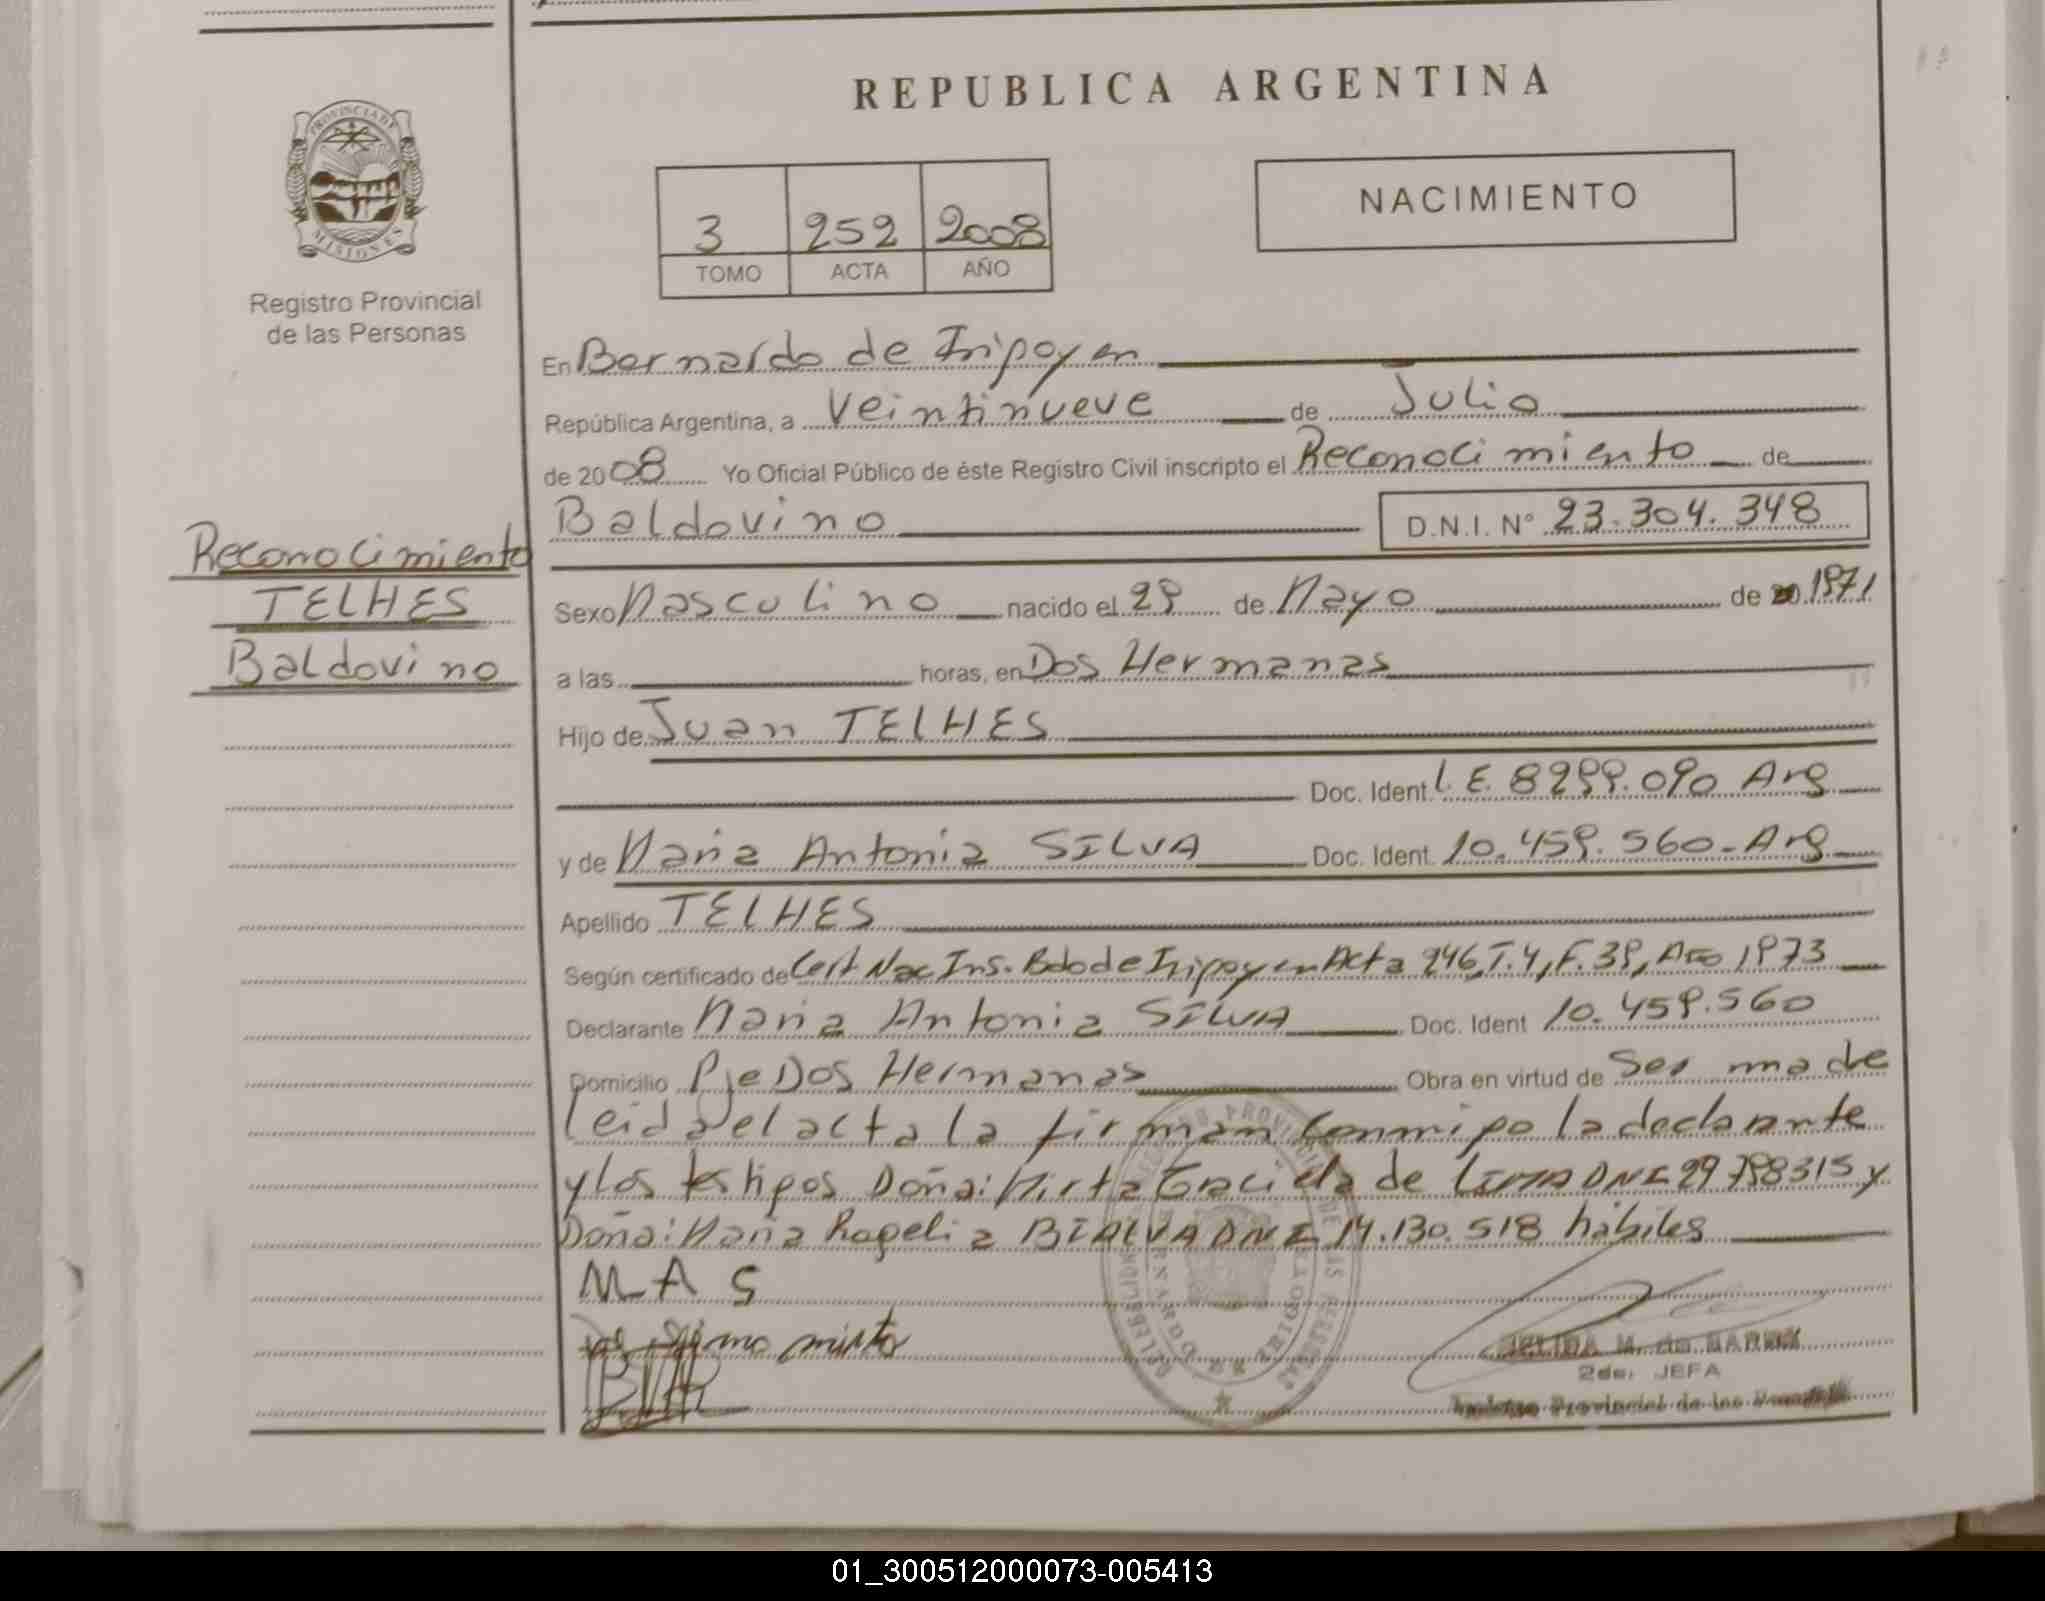 REPUBLICA ARGENTINA
PROVINCIA DE
MISIONES
Registro Provincial
de las Personas
NACIMIENTO
3 252 2008
TOMO ACTA AÑO
En Bernardo de Iripoyen
República Argentina, a Veintinueve de Julio
de 2008 Yo Oficial Público de éste Registro Civil inscripto el Reconocimiento de
Baldovino D.N.I. N° 23.304.348
Reconocimiento
TELHES
Baldovino
Sexo Masculino nacido el 29 de Mayo de 20 1971
a las horas, en Dos Hermanas
Hijo de Juan TELHES
Doc. Ident L.E. 8299.090 Arg
y de Maria Antonia SILVA Doc. Ident. 10.459.560-Arg
Apellido TELHES
Según certificado de Cert Nac Ins. Bdo de Iripoyen Acta 246, T.4, F.39, Año 1973
Declarante Maria Antonia SILVA Doc. Ident 10.459.560
Domicilio Pje Dos Hermanas Obra en virtud de Ser made
Leida el acta la firman Conmipo la declarante
y los testipos Doña: Mirta Graciela de LIMA DNI 29798315 y
Doña: Maria Rogelia BIALVA DNI 14.130.518 hábiles
MAS
2da. JEFA
Provincial de las
01_300512000073-005413